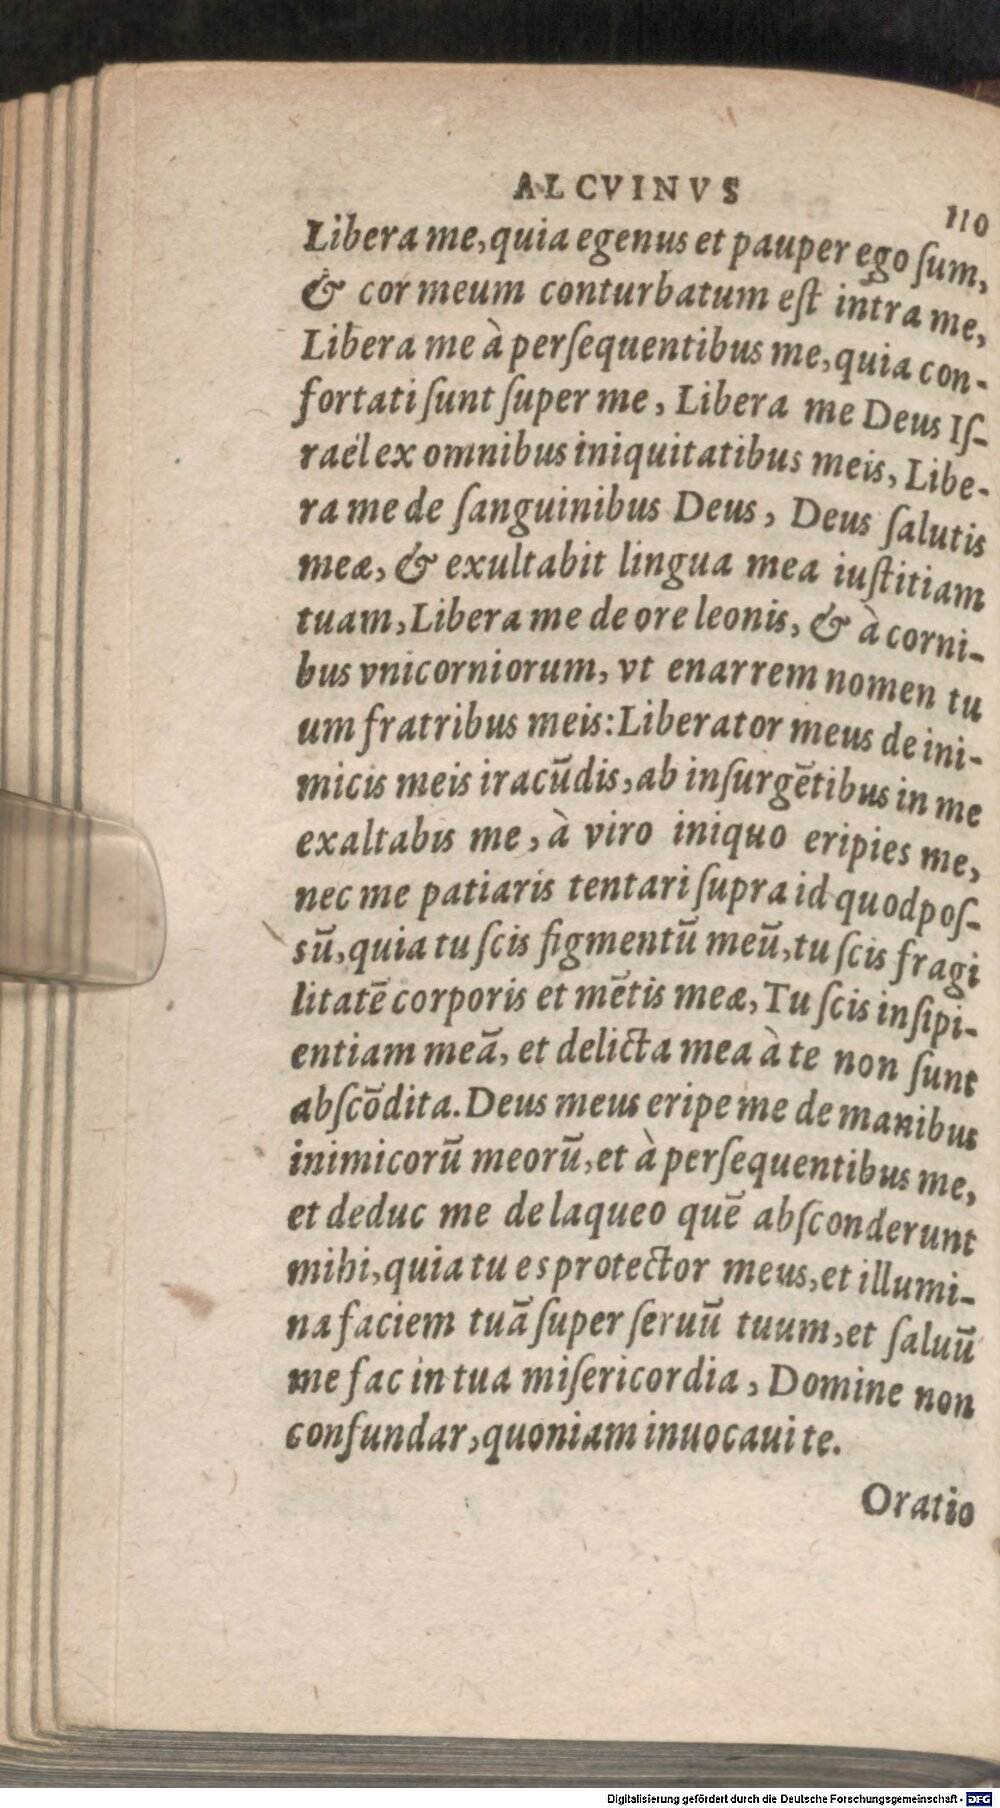 ALCVINVS
110
Libera me, quia egenus et pauper ego ſum,
& cor meum conturbatum eſt intra me,
Libera me à perſequentibus me, quia con-
fortati ſunt ſuper me, Libera me Deus Iſ-
raël ex omnibus iniquitatibus meis, Libe-
ra me de ſanguinibus Deus, Deus ſalutis
meæ, & exultabit lingua mea iuſtitiam
tuam, Libera me de ore leonis, & à corni-
bus vnicorniorum, vt enarrem nomen tu
um fratribus meis: Liberator meus de ini-
micis meis iracūdis, ab inſurgētibus in me
exaltabis me, à viro iniquo eripies me,
nec me patiaris tentari ſupra id quod poſ-
sū, quia tu ſcis figmentū meū, tu ſcis fragi
litatē corporis et mētis meæ, Tu ſcis inſipi-
entiam meā, et delicta mea à te non ſunt
abſcōdita. Deus meus eripe me de manibus
inimicorū meorū, et à perſequentibus me,
et deduc me de laqueo quē abſconderunt
mihi, quia tu es protector meus, et illumi-
na faciem tuā ſuper ſeruū tuum, et ſaluū
me fac in tua miſericordia, Domine non
confundar, quoniam inuocaui te.
Oratio
Digitalisierung gefördert durch die Deutsche Forschungsgemeinschaft - DFG